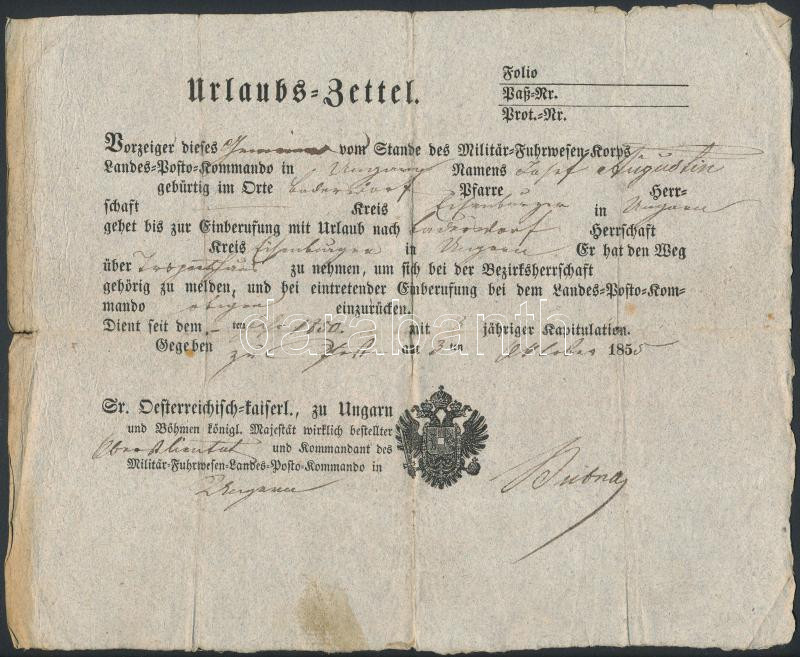 Urlaubs-Zettel.
Folio
Paß-Nr.
Prot.-Nr.
Vorzeiger dieses vom Stande des Militär-Fuhrwesen-Korps
Landes-Posto-Kommando in Ungarn Namens Josef Augustin
gebürtig im Orte Pfarre Herr-
schaft Kreis Eisenburger in Ungarn
gehet bis zur Einberufung mit Urlaub nach Herrschaft
Kreis Eisenburger in Ungarn Er hat den Weg
über zu nehmen, um sich bei der Bezirksherrschaft
gehörig zu melden, und bei eintretender Einberufung bei dem Landes-Posto-Kom-
mando obigen einzurücken.
Dient seit dem 1850. mit jähriger Kapitulation.
Gegeben zu Pest am 3ten Oktober 1855
Sr. Oesterreichisch-kaiserl., zu Ungarn
und Böhmen königl. Majestät wirklich bestellter
und Kommandant des
Militär-Fuhrwesen-Landes-Posto-Kommando in
Ungarn
Bubna
darabanth